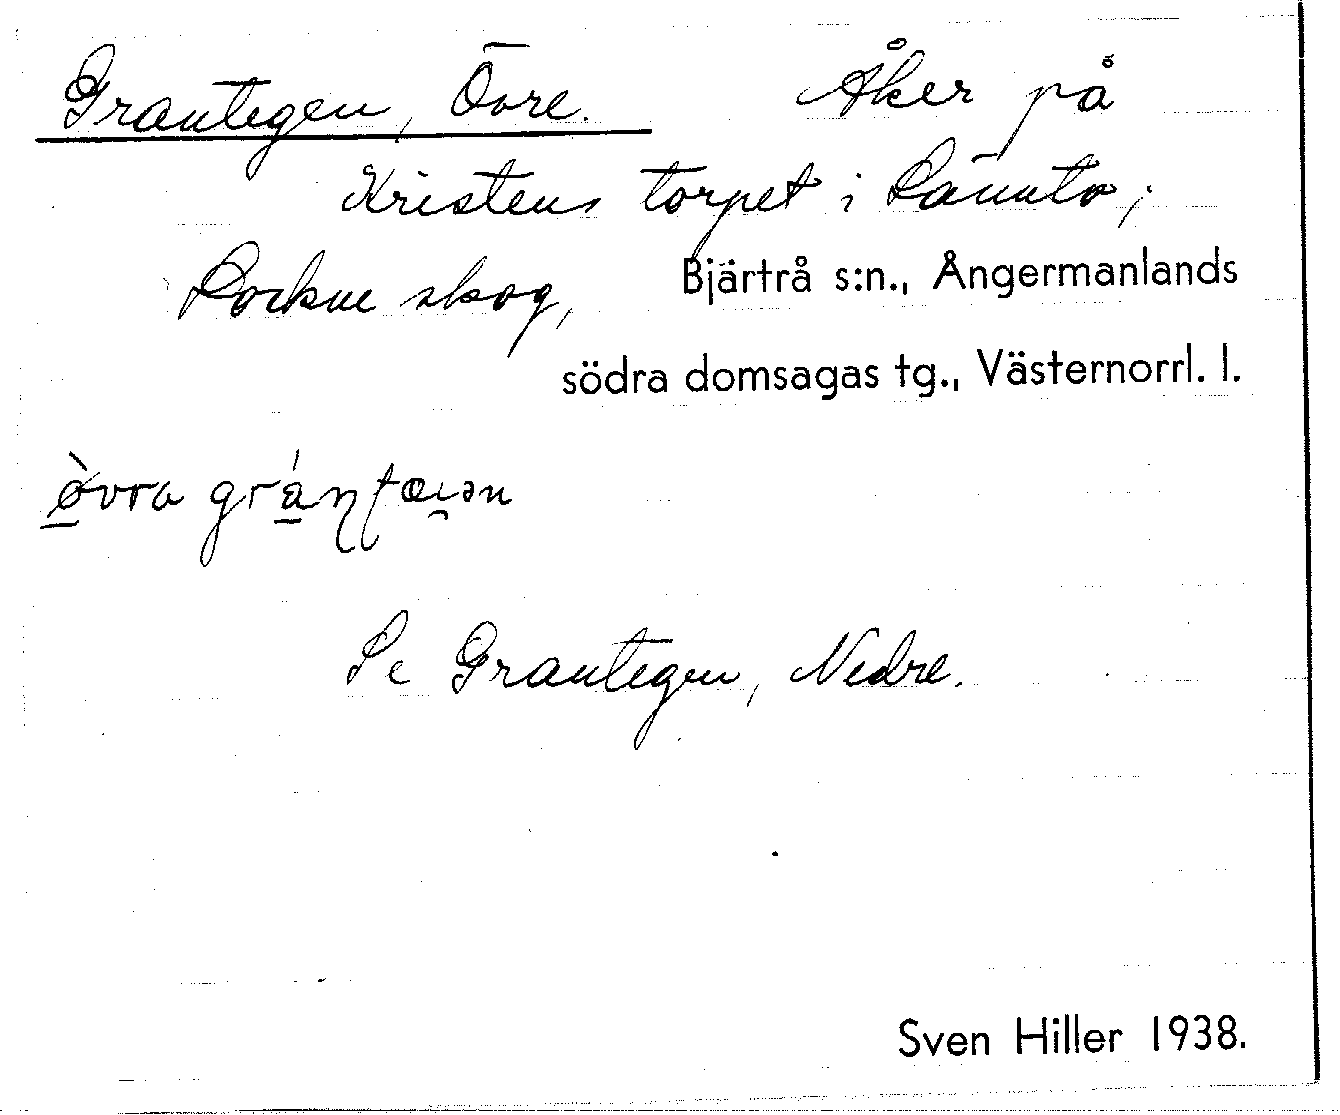 Grantegen, Övre. Åker på
Kristens torpet i Lännto,
Lockne skog, Bjärtrå s:n., Ångermanlands
södra domsagas tg., Västernorrl. l.
Se Grantegen, Nedre.
Sven Hiller 1938.